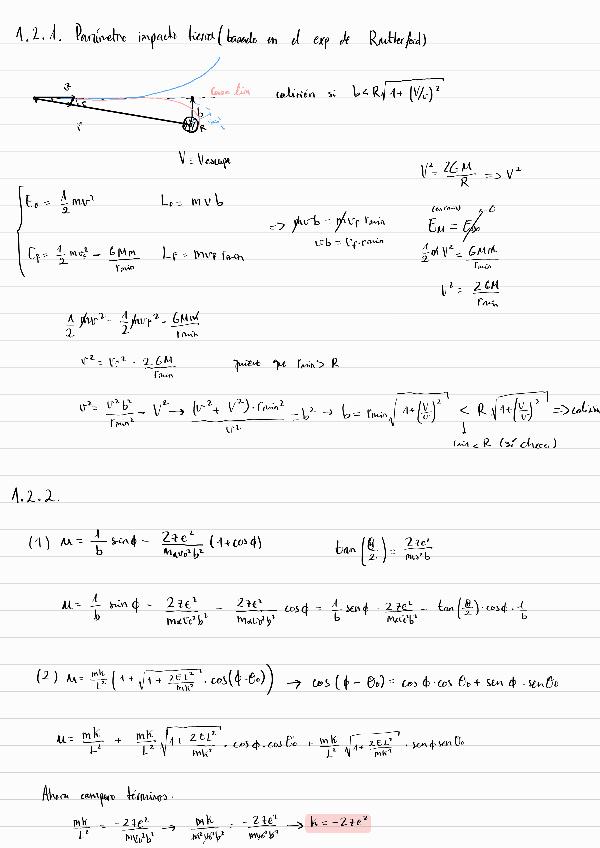 1.2.1. Parámetro impacto tierra (basado en el exp de Rutherford)
caso lim
colisión si b < R√(1 + (V/v)²)
b
R
r
V = Vescape
V² = 2GM/R => V²
E₀ = 1/2 mv²
L₀ = mvb
=> mvb = mv_f r_min
vb = v_f · r_min
E_M = E_∞ 0
E_f = 1/2 mv_f² - GMm/r_min
L_f = m v_f r_min
1/2 mV² = GMm/r_min
V² = 2GM/r_min
1/2 mv² = 1/2 mv_f² - GMm/r_min
v² = v_f² - 2GM/r_min
quiero que r_min > R
v² = v²b²/r_min² - V² → (v² + V²) · r_min²/v² = b² → b = r_min √(1 + (V/v)²) < R √(1 + (V/v)²) => colisión
r_min < R (sí choca)
1.2.2.
(1) u = 1/b sinϕ - 2Ze²/m_αv₀²b² (1 + cosϕ)
tan(θ/2) = 2Ze²/mv₀²b
u = 1/b sinϕ - 2Ze²/m_αv₀²b² - 2Ze²/m_αv₀²b² cosϕ = 1/b senϕ - 2Ze²/m_αv₀²b² - tan(θ/2) · cosϕ · 1/b
(2) u = mk/L² (1 + √(1 + 2EL²/mk²) · cos(ϕ - θ₀)) → cos(ϕ - θ₀) = cosϕ · cosθ₀ + senϕ · senθ₀
u = mk/L² + mk/L² √(1 + 2EL²/mk²) · cosϕ · cosθ₀ + mk/L² √(1 + 2EL²/mk²) · senϕ senθ₀
Ahora comparo términos.
mk/L² = -2Ze²/mv₀²b² → mk/m²v₀²b² = -2Ze²/mv₀²b² → k = -2Ze²